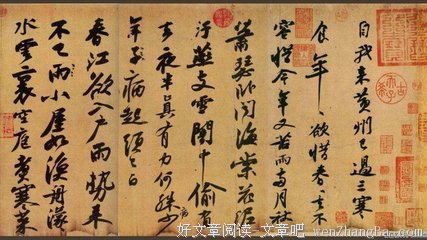 自我来黄州已過三寒
食年〻欲惜春春去不
容惜今年又苦雨兩月秋
蕭瑟卧聞海棠花泥
汙燕支雪闇中偷負
去夜半真有力何殊病少
年子病起頭已白
春江欲入戶雨勢来
不已雨小屋如漁舟濛〻
水雲裏空庖煮寒菜
好文章阅读_文章吧!
wenZhangBa.com